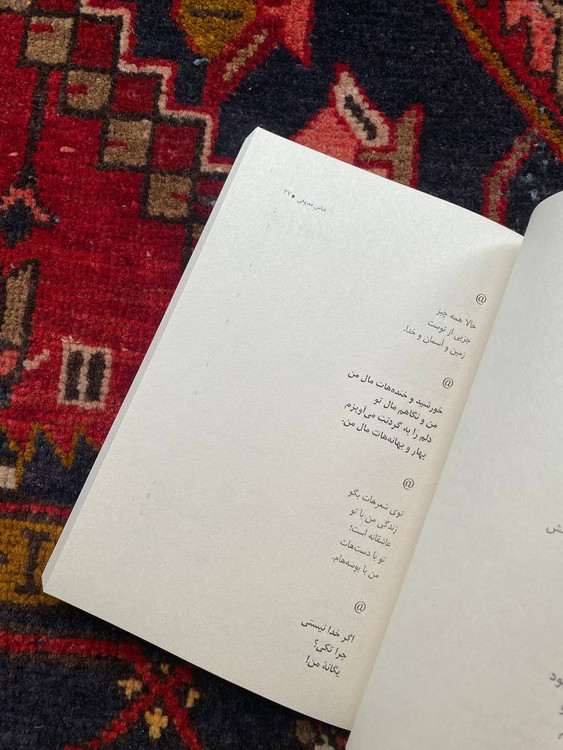 عباس معروفی ● ۳۷
@
حالا همه چیز
جزیی از توست
زمین و آسمان و خدا.
@
خورشید و خنده‌هات مال من
من و نگاهم مال تو
دلم را به گردنت می‌آویزم
بهار و بهانه‌هات مال من.
@
توی شعرهات بگو
زندگی من با تو
عاشقانه است؛
تو با دست‌هات
من با بوسه‌هام.
@
اگر خدا نیستی
چرا تکی؟
یگانهٔ من!